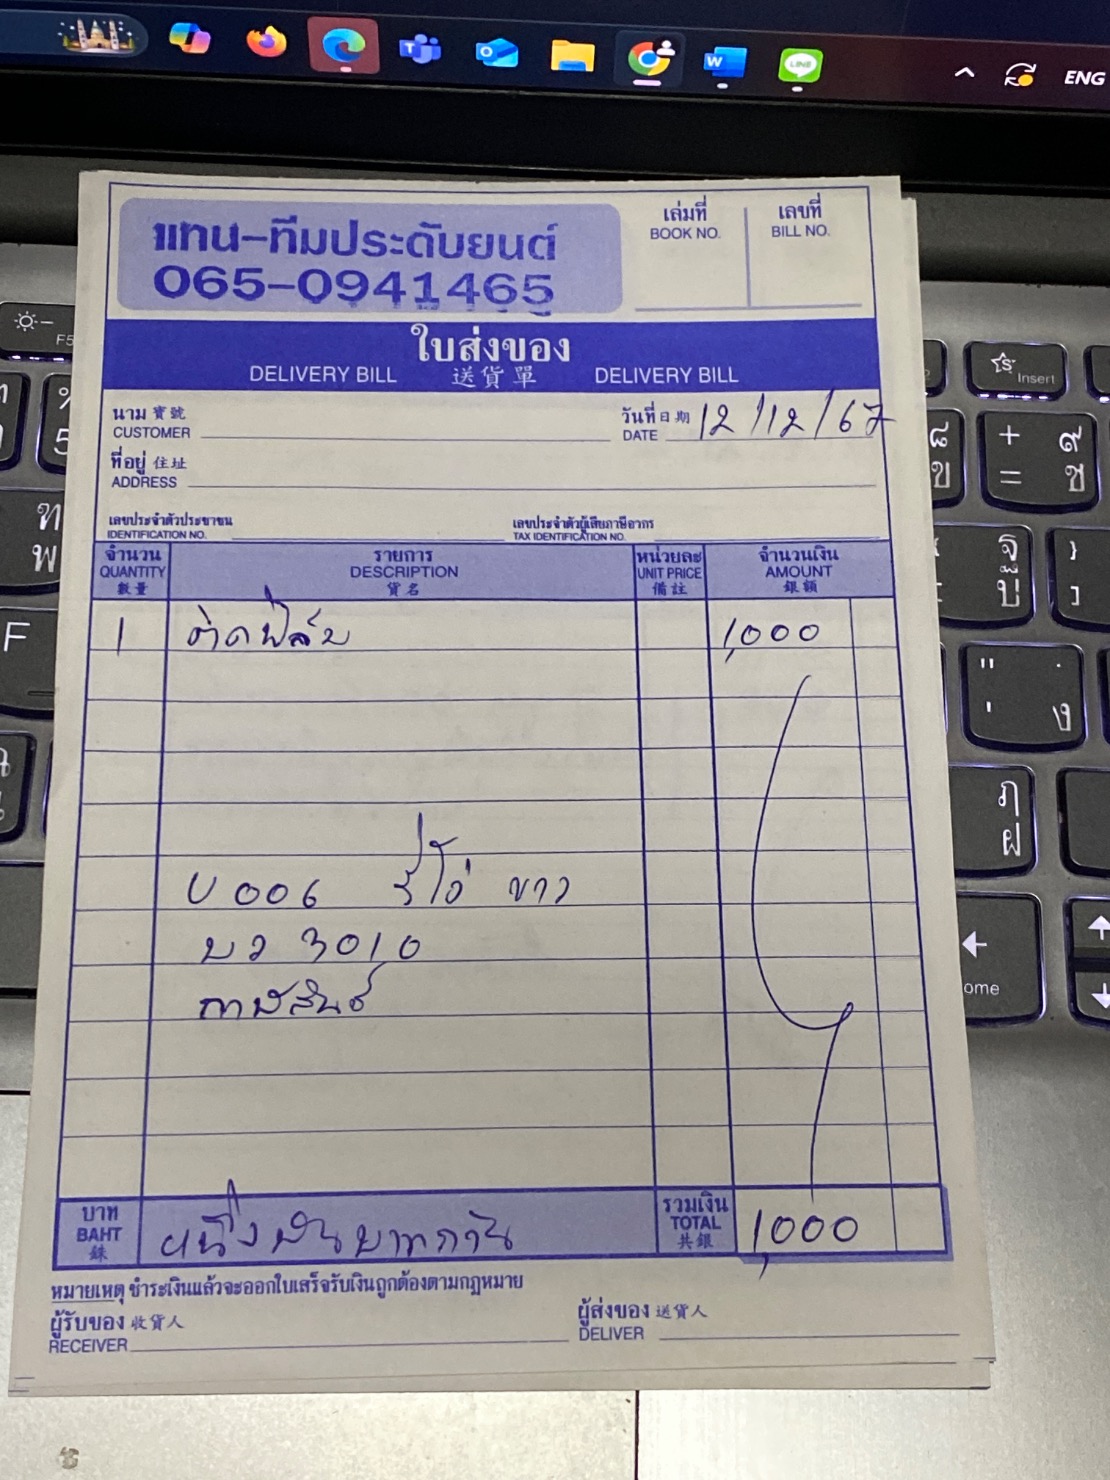 ENG
แทน-ทีมประดับยนต์
065-0941465
เล่มที่
BOOK NO.
เลขที่
BILL NO.
ใบส่งของ
DELIVERY BILL 送貨單 DELIVERY BILL
นาม 寶號
CUSTOMER
วันที่ 日期
DATE 12/12/67
ที่อยู่ 住址
ADDRESS
เลขประจำตัวประชาชน
IDENTIFICATION NO.
เลขประจำตัวผู้เสียภาษีอากร
TAX IDENTIFICATION NO.
จำนวน
QUANTITY
數量
รายการ
DESCRIPTION
貨名
หน่วยละ
UNIT PRICE
備註
จำนวนเงิน
AMOUNT
銀額
1 ติดฟิล์ม 1,000
U006 รีโว่ ขาว
บว 3010
กาฬสินธุ์
บาท
BAHT
銖
หนึ่งพันบาทถ้วน
รวมเงิน
TOTAL
共銀
1,000
หมายเหตุ ชำระเงินแล้วจะออกใบเสร็จรับเงินถูกต้องตามกฎหมาย
ผู้รับของ 收貨人
RECEIVER
ผู้ส่งของ 送貨人
DELIVER
F5
Insert
ome